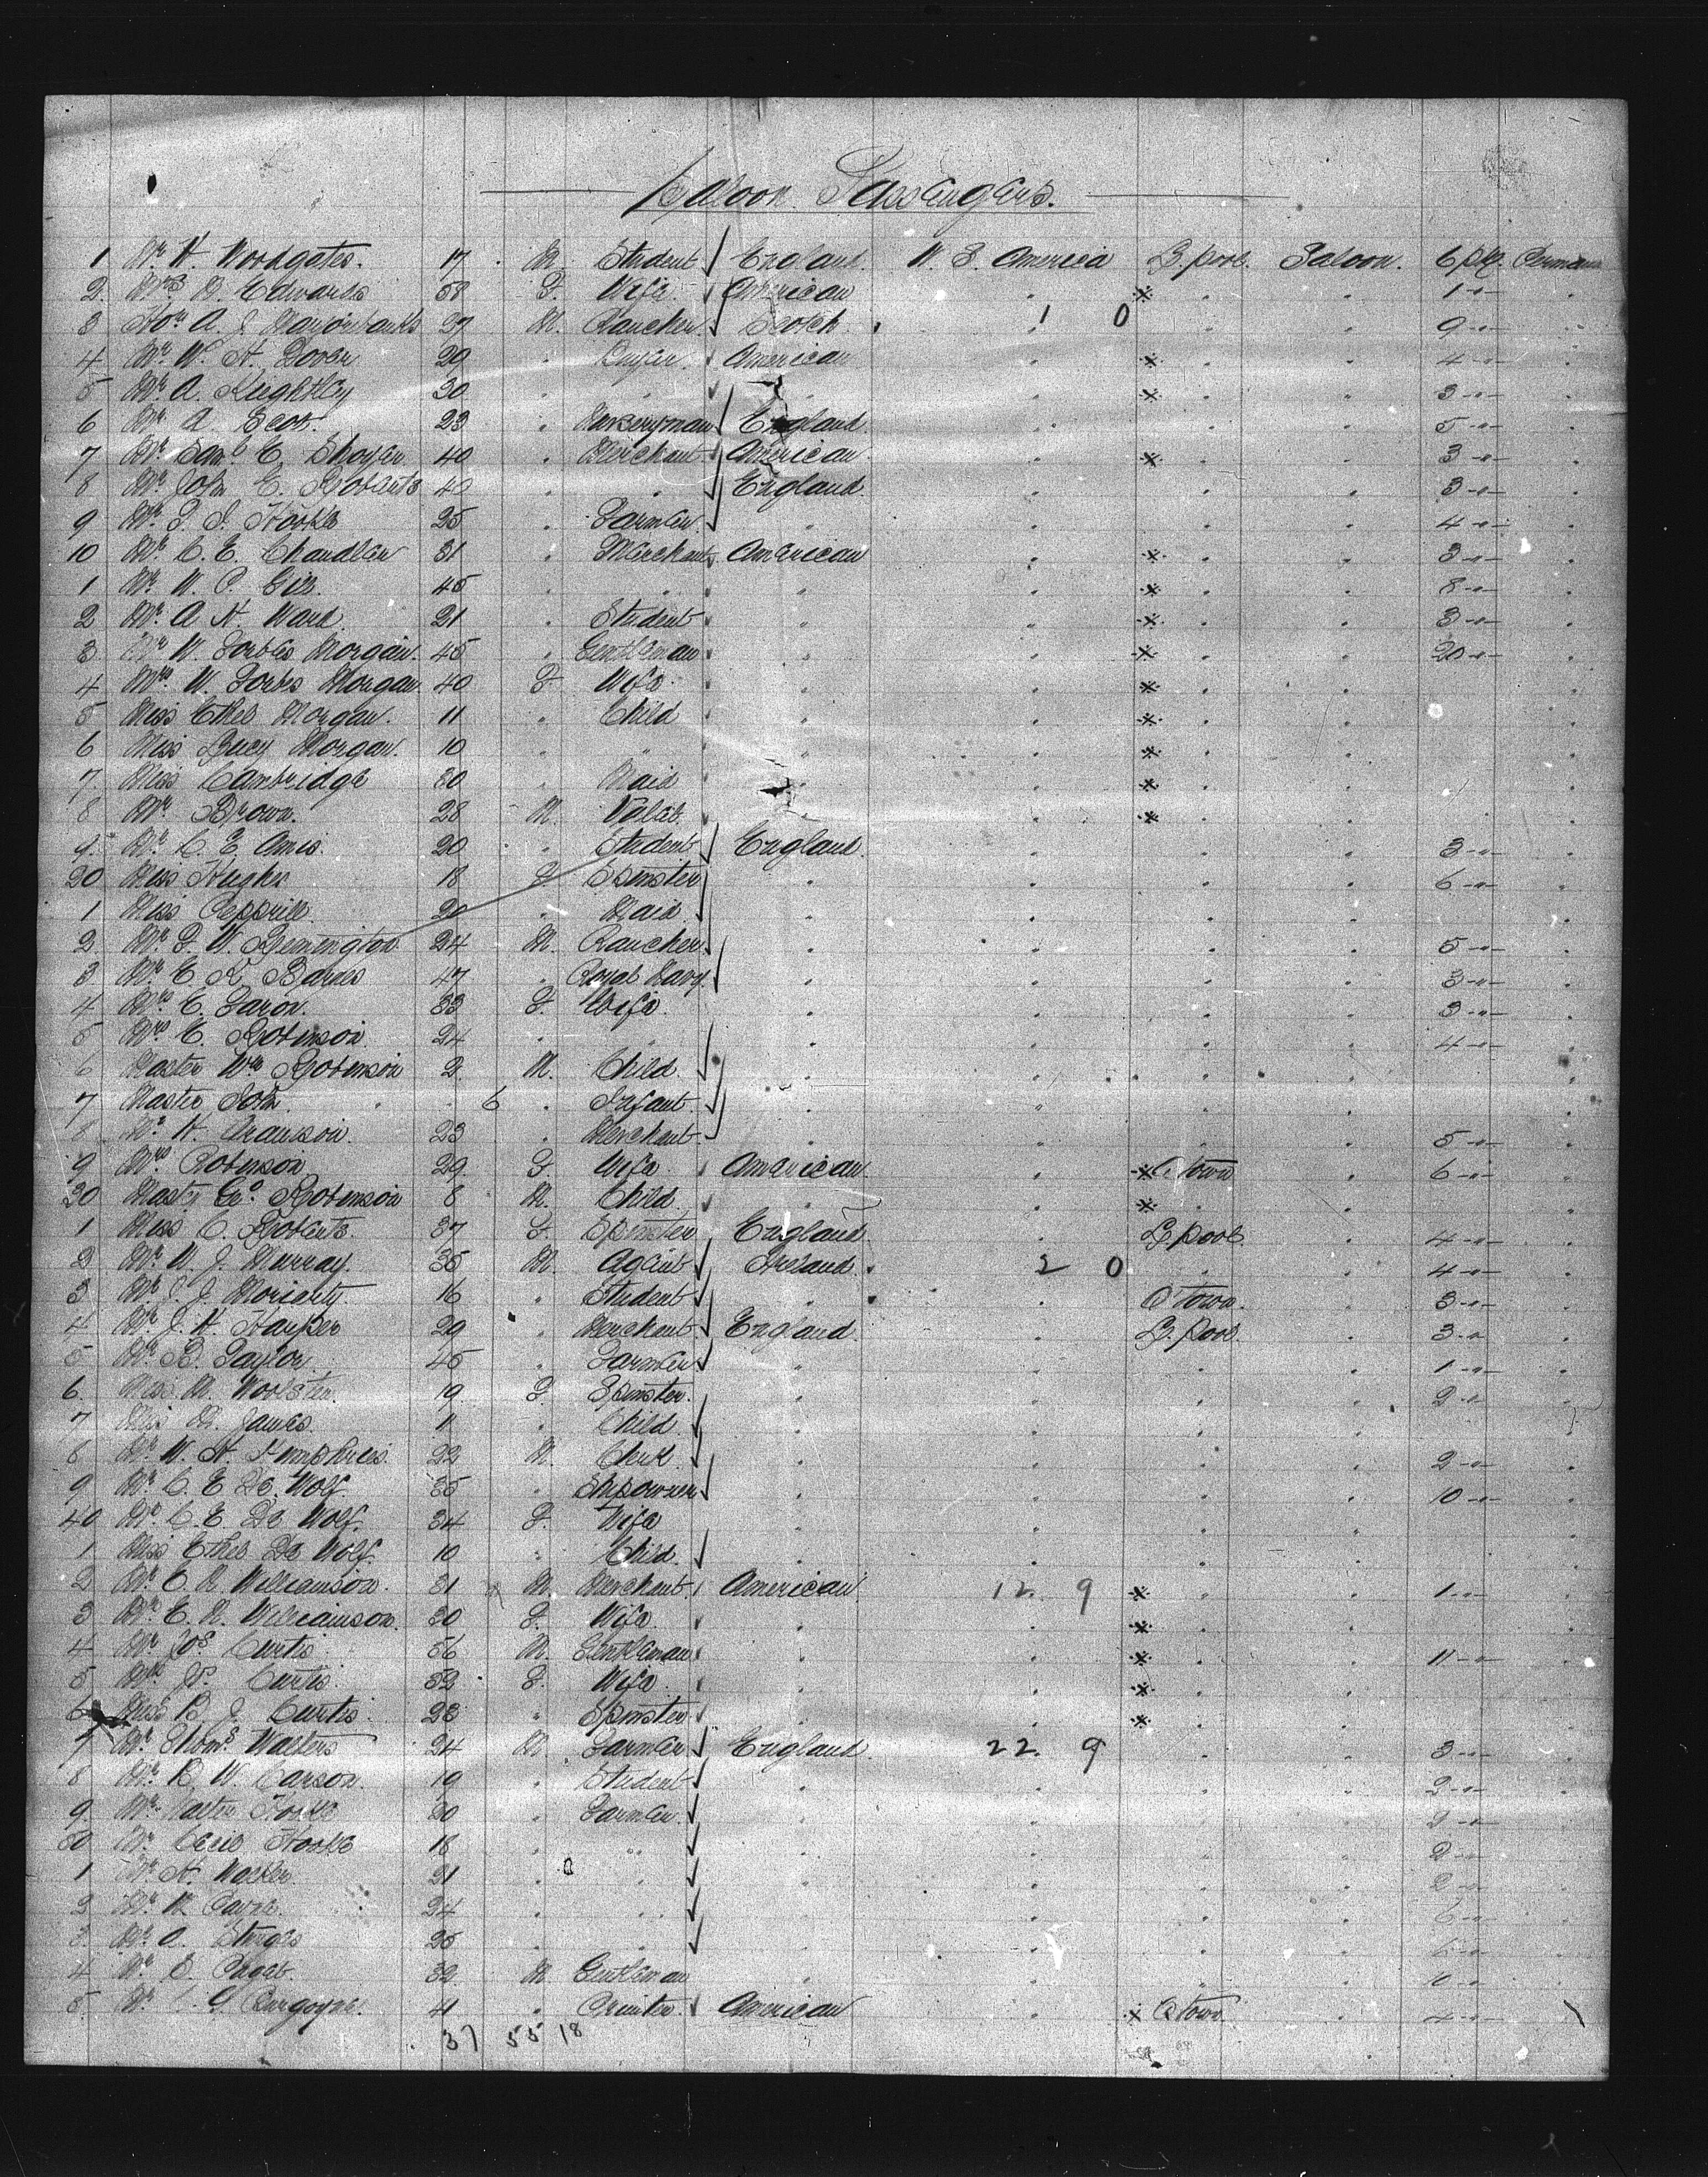 Saloon Passengers.
1 Mr H. Woodgates. 17 M. Student England. U. S. America L.pool. Saloon. 6 pk.
2. Mrs B. Edwards 58 F. Wife. American " * " " 1 -"-
3 Hon A. J. Marjoribanks 27 M. Rancher Scotch. 1 0 " " 9 -"-
4 Mr W. H. 29 " Buyer. American " * " " 4 -"-
5 Mr A. Keightley 30 " " " " * " " 3 -"-
6 Mr A. 23 " Nurseryman England " " " 5 -"-
7 Mr Saml E. 40 " Merchant American. " * " " 3 -"-
8 Mr John E. Roberts 40 " " England. " " " 3 -"-
9 Mr Hooke 25 " Farmer. " " " " 4 -"-
10 Mr C. E. Chandler 31 " Merchant American " * " " 3 -"-
1 Mr W. 45 " " " " * " " 8 -"-
2 Mr A H. Ward. 21 " Student " " * " " 3 -"-
3 Mr W. Forbes Morgan. 45 " Gentleman " " * " " 20 -"-
4 Mrs W. Forbes Morgan 40 F. Wife. " " * " "
5 Miss Ethel Morgan. 11 " Child " " * " "
6 Miss Lucy Morgan. 10 " " " " * " "
7 Miss Cambridge 30 " Maid " " * " "
8 Mr Brown. 28 M. Valet. " " * " "
9. Mr C. E. Amis. 20 " Student England. " " " 3 -"-
20 Miss Hughes 18 F Spinster " " " " 6 -"-
1 Miss 20 " Maid. " " " "
2 Mr F. W. Remington 24 M. Rancher. " " " " 5 -"-
3 Mr E. K. Barnes 47 " Royal Navy. " " " " 3 -"-
4 Mrs C. 33 F. Wife. " " " " 3 -"-
5 Mrs E. Robinson. 24 " " " " " " 4 -"-
6 Master Wm Robinson 2. M. Child. " " " "
7 Master John. " 6 " Infant. " " " "
8 Mr H. 23 " Merchant. " " " " 5 -"-
9 Mrs Robinson 29 F Wife American. " * Q.town " 6 -"-
30 Mastr Geo. Robinson 8 M. Child. " " * " "
1 Miss C. Roberts. 37 F. Spinster England. " L.pool. " 4 -"-
2 Mr W. J. Murray. 35 M. Agent Ireland. 2 0 " " 4 -"-
3 Mr J. Moriarty. 16 " Student " " Q'town. " 3 -"-
4 Mr J. H. Harper 29 " Merchant. England. " L.pool. " 3 -"
5 Mr B. Taylor. 45 " Farmer " " " " 1 -"-
6. Miss M. 19 F. Spinster. " " " " 2 -"-
7 Miss M. James. 11 " Child. " " " "
8 Mr W. H. Humphries. 22 M. Clerk. " " " " 2 -"-
9 Mr C. E De Wolf. 35 " Shipowner " " " " 10 -"-
40 Mrs C. E. De Wolf. 34 F. Wife " " " "
1 Miss Ethel De Wolf. 10 " Child. " " " "
2 Mr E. R. Williamson. 31 M. Merchant. American. 12. 9 * " " 1 -"-
3 Mrs E. R. Williamson. 30 F. Wife " " * " "
4 Mr Jos Curtis. 56 M. Gentleman " " * " " 11 -"-
5 Mrs Js. Curtis. 52 F. Wife. " " * " "
6 Miss B J. Curtis. 23 " Spinster " " * " "
7 Mr Thoms Walters 24 M. Farmer England. 22. 9 " " 3 -"-
8 Mr R. W. Carson. 19 " Student " " " " 2 -"-
9 Mr Walter Hooke 20 " Farmer. " " " " 2 -"-
50 Mr Cecil Hooke 18 " " " " " " 2 -"-
1 Mr H. 21 " " " " " " 2 -"-
2 Mr 24 " " " " " " 6 -"-
3 Mr A. Sturges 25 " " " " " "
4 Mr 32 M. Gentleman " " " " 10 -"-
5 Mr Burgoyne. 41 " Printer. American " * Qtown. " 4 -"-
37 55 18